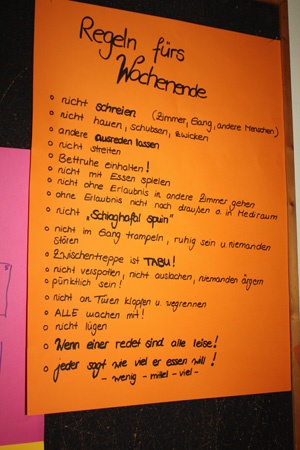 Regeln fürs
Wochenende
nicht schreien (Zimmer, Gang, andere Menschen)
nicht hauen, schubsen, zwicken
andere ausreden lassen
nicht streiten
Bettruhe einhalten!
nicht mit Essen spielen
nicht ohne Erlaubnis in andere Zimmer gehen
ohne Erlaubnis nicht nach draußen o. in Mediraum
nicht "Schloghofal spuin"
nicht im Gang trampeln, ruhig sein u. niemanden
stören
Zwischentreppe ist TABU!
nicht verspotten, nicht auslachen, niemanden ärgern
pünktlich sein!
nicht an Türen klopfen u. wegrennen
ALLE machen mit!
nicht lügen
Wenn einer redet sind alle leise!
jeder sagt wie viel er essen will!
- wenig - mittel - viel -